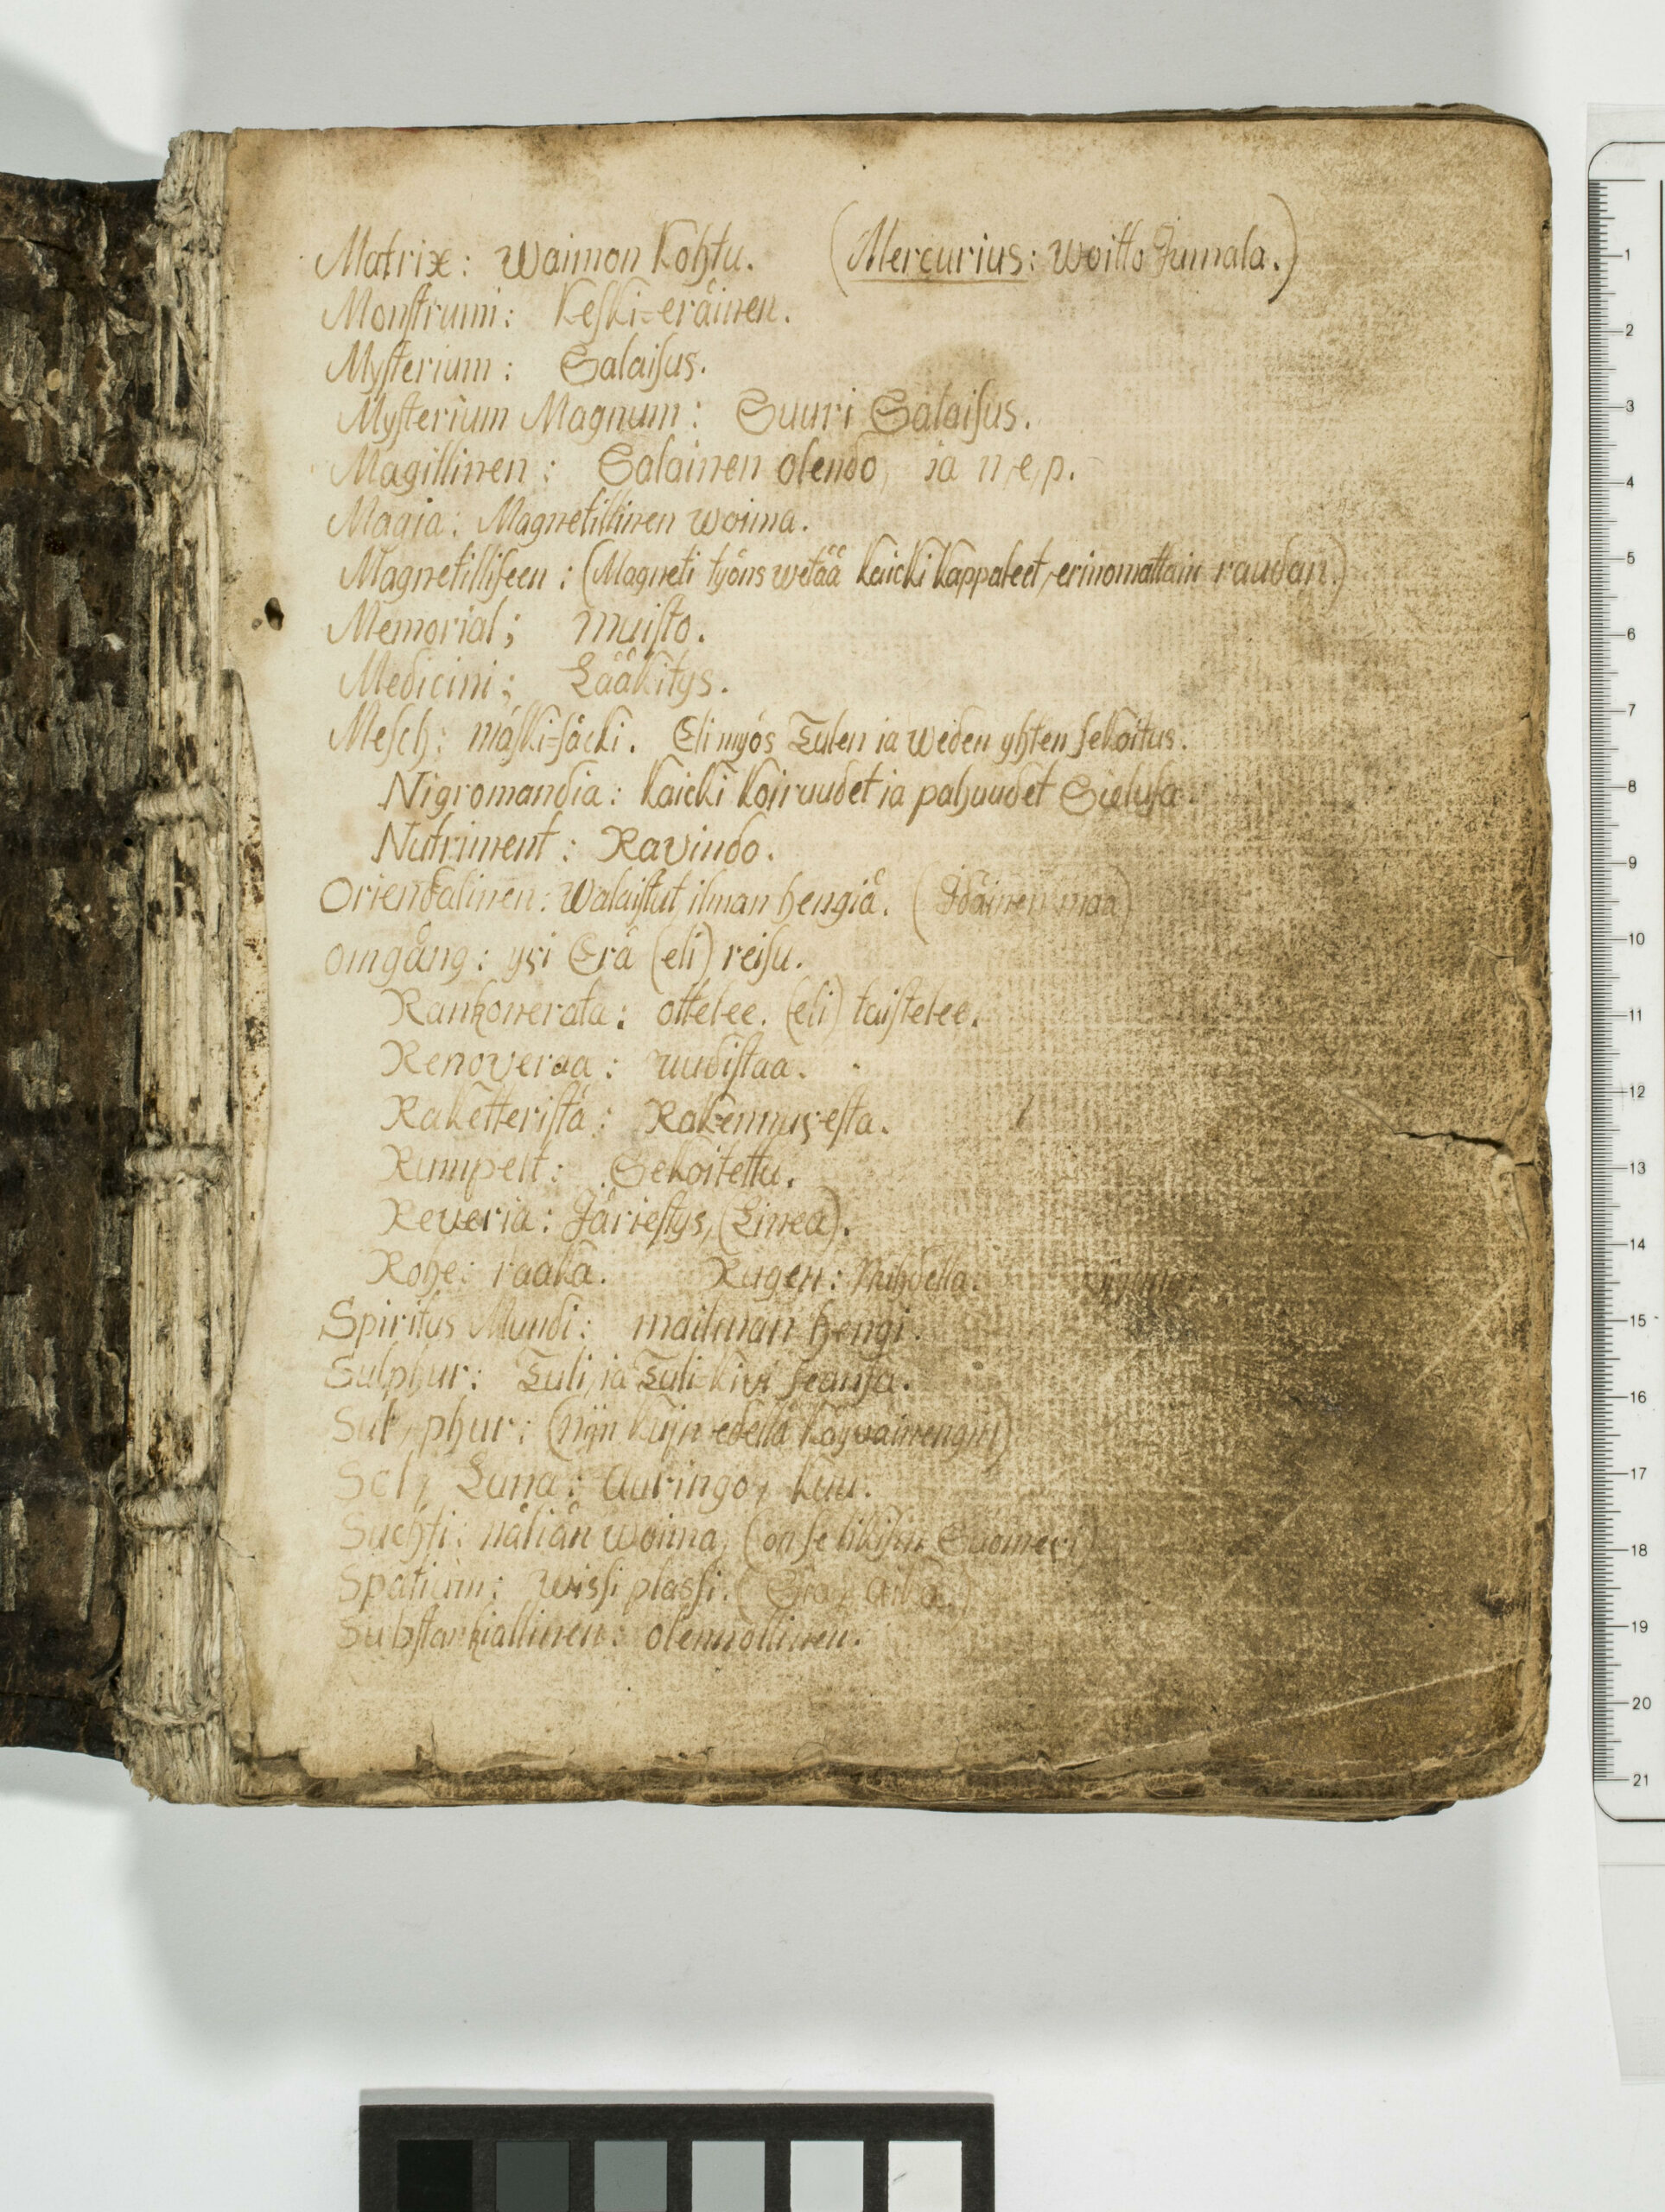 Matrix: Waimon Kohtu. (Mercurius: Woitto Jumala.)
Monstrumi: Keski-eräinen.
Mysterium: Salaisus.
Mysterium Magnum: Suuri Salaisus.
Magillinen: Salainen olendo, ja n, e, p.
Magia: Magnetillinen woima.
Magnetilliseen: (Magneti työns wetää kaicki kappaleet, erinomattain raudan.)
Memorial; muisto.
Medicini: Lääkitys.
Mesch: mäski-säcki. Eli myös Tulen ja Weden yhten sekoitus.
Nigromandia: kaicki koiruudet ja pahuudet Sielusa
Nutriment: Ravindo.
Orientalinen: Walaistut ilman hengiä. (Idäinen maa)
Omgång: yxi Erä (eli) reisu.
Rankonerata: ottelee. (eli) taistelee.
Renoveraa: uudistaa.
Raketteristä: Rakennuxesta.
Rumpelt: Sekoitettu.
Reveria: Järjestys, (Linea).
Rohe: raaka. Rugen:
Spiritus Mundi: mailman hengi.
Sulphur: Tuli, ja Tuli-kivi
Sul, phur: (nijn kujn edellä
Sol, Luna: Auringo, kuu.
Suchti: näliän woima, (on se
Spatium: wissi plassi. (Sia, Aika.)
Substantiallinen: olennollinen.